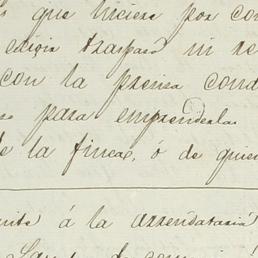 que hiciese por co
edicir traspaso ni re
con la previa cond
para emprenderlas
de la finca, ó de quien
á la arrendataria